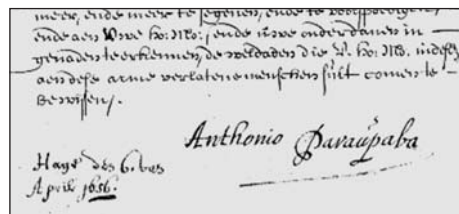 meer, ende meer te segenen, ende te voorspoedigen
ende aen Uwe ho: Mo:, ende uwe onderdanen in
genaden te erkennen, de weldaden die U. ho: Mo. in
aen dese arme verlatene menschen sult comen te
bewijsen.
Anthonio Paraupaba
Hage des 6. van
April 1656.